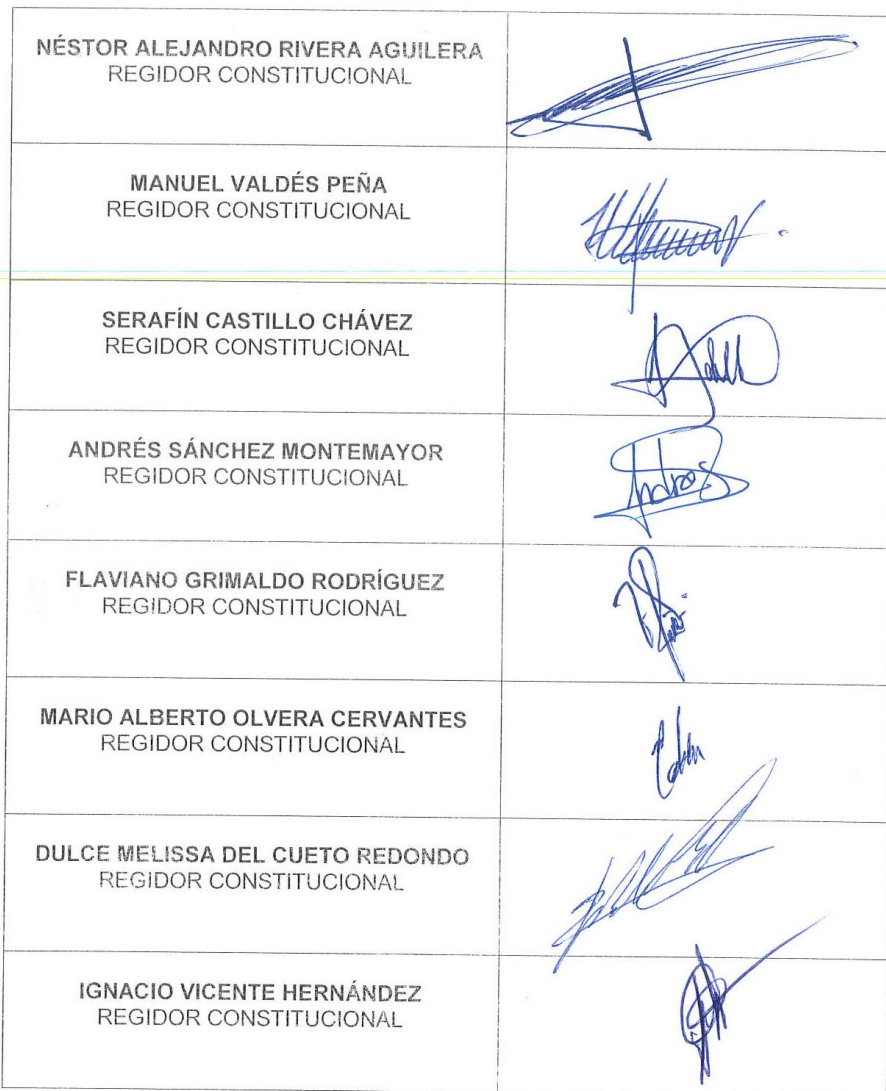 NÉSTOR ALEJANDRO RIVERA AGUILERA
REGIDOR CONSTITUCIONAL
MANUEL VALDÉS PEÑA
REGIDOR CONSTITUCIONAL
SERAFÍN CASTILLO CHÁVEZ
REGIDOR CONSTITUCIONAL
ANDRÉS SÁNCHEZ MONTEMAYOR
REGIDOR CONSTITUCIONAL
Andres
FLAVIANO GRIMALDO RODRÍGUEZ
REGIDOR CONSTITUCIONAL
MARIO ALBERTO OLVERA CERVANTES
REGIDOR CONSTITUCIONAL
DULCE MELISSA DEL CUETO REDONDO
REGIDOR CONSTITUCIONAL
IGNACIO VICENTE HERNÁNDEZ
REGIDOR CONSTITUCIONAL